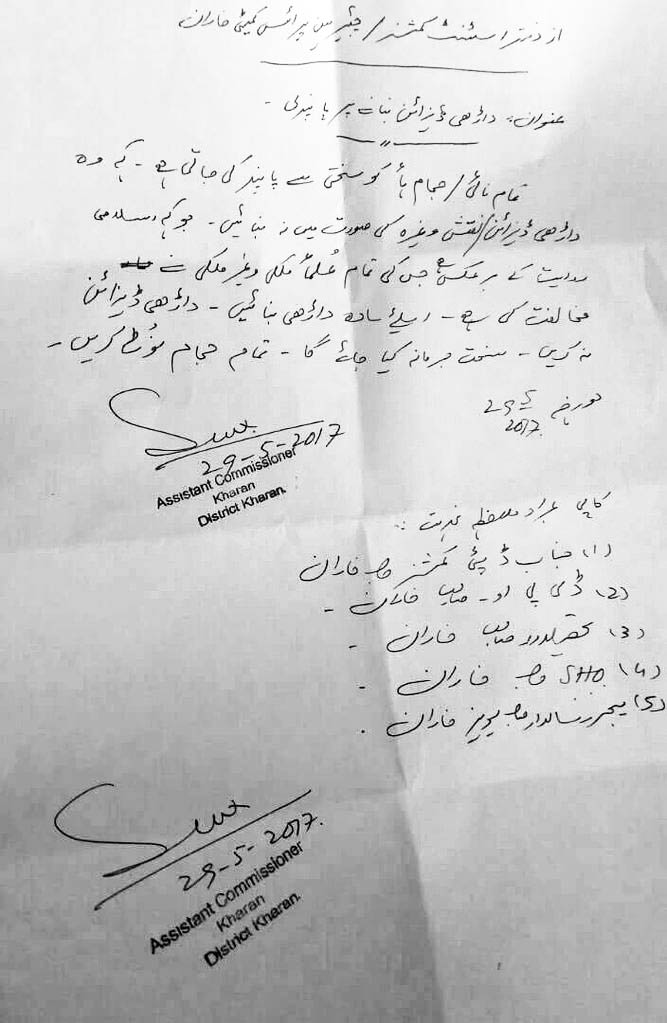 از دفتر اسسٹنٹ کمشنر / چیئرمین پرائس کمیٹی خاران
عنوان: داڑھی ڈیزائن بنانے پر پابندی -
تمام نائی / حجام ہا کو سختی سے پابند کی جاتی ہے - کہ وہ
داڑھی ڈیزائن / نقش وغیرہ کی صورت میں نہ بنائیں - جو کہ اسلامی
روایت کے برعکس ہے جس کی تمام عُلماُ ملکی وغیر ملکی نے
مخالفت کی ہے - اسلئے سادہ داڑھی بنائیں - داڑھی ڈیزائن
نہ کریں - سخت جرمانہ کیا جائے گا - تمام حجام نوُٹ کریں -
مورخہ 29-5-2017
29-5-2017
Assistant Commissioner
Kharan
District Kharan.
کاپی بمراد ملاحظہ خدمت :-
(1) جناب ڈپٹی کمشنر صاحب خاران
(2) ڈی پی او - صاحب خاران -
(3) تحصیلدار صاحب خاران -
(4) SHO صاحب خاران -
(5) میجر رسالدار صاحب لیویز خاران .
29-5-2017.
Assistant Commissioner
Kharan
District Kharan.